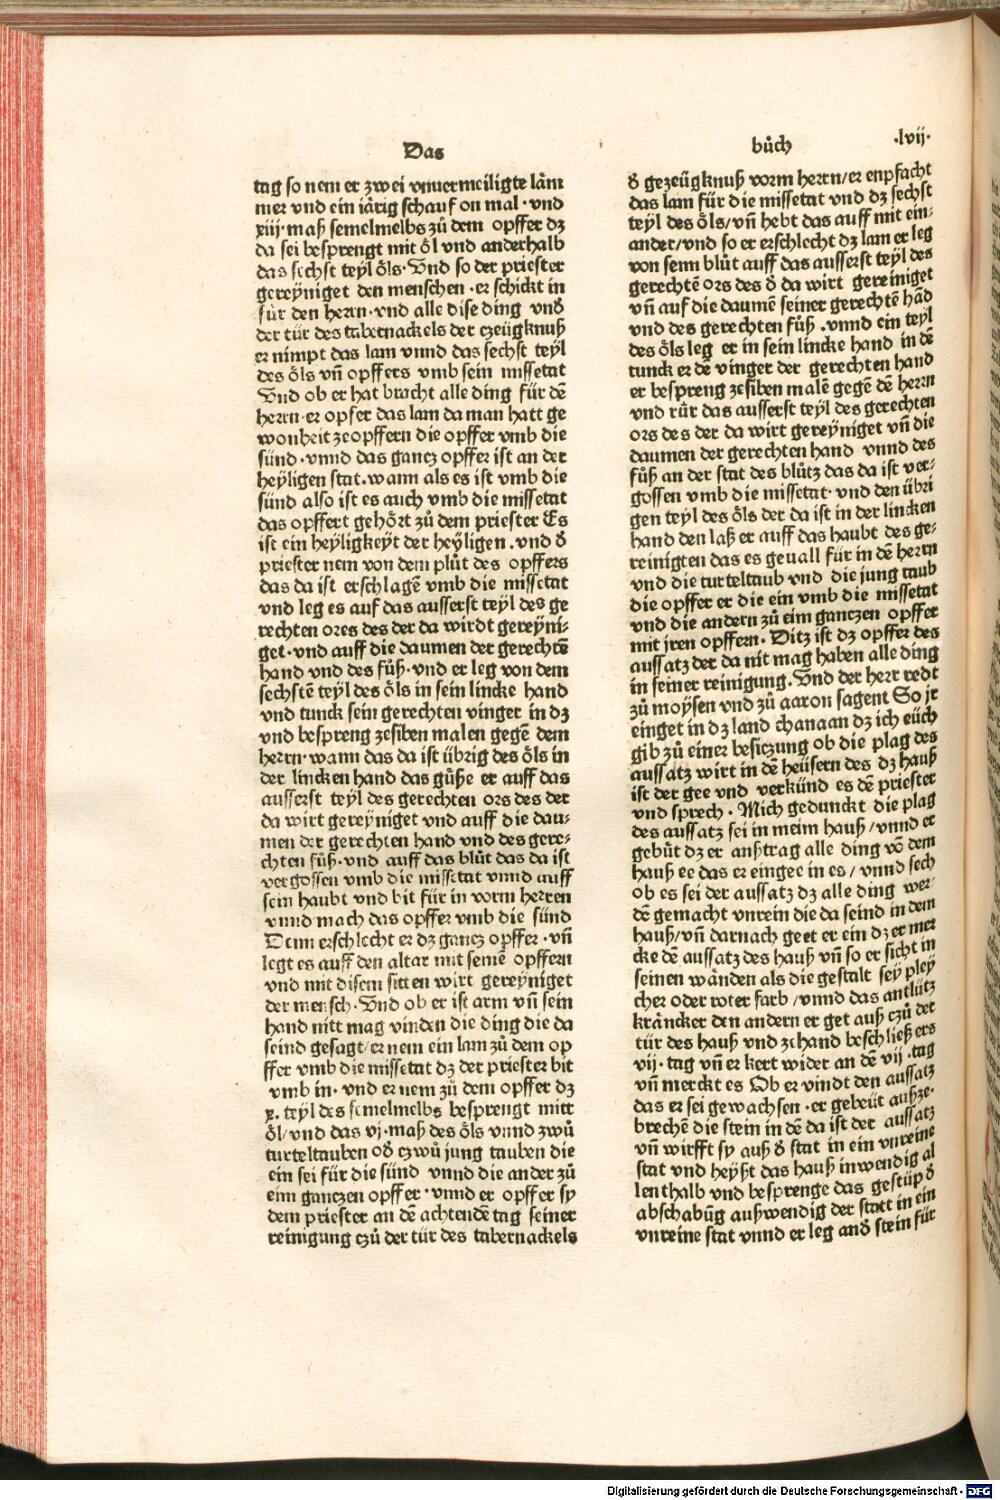 Das
tag so nem er zwei vnuermeiligte läm
mer vnd ein iärig schauf on mal · vnd
xiij · maß semelmelbs zů dem opffer dz
da sei besprengt mit öl vnd anderhalb
das sechst teyl öls · Vnd so der priester
gereyniget den menschen · er schickt in
für den herrn · vnd alle dise ding vnd̄
der tür des tabernackels der czeügknuß
er nimpt das lam vnnd das sechst teyl
des öls vn̄ opffers vmb sein missetat
Vnd ob er hat bracht alle ding für dē
herrn · er opfer das lam da man hatt ge
wonheit zeopffern die opffer vmb die
sünd · vnnd das gancz opffer ist an der
heyligen stat. wann als es ist vmb die
sünd also ist es auch vmb die missetat
das opffert gehört zů dem priester Es
ist ein heyligkeyt der heyligen . vnd d̄
priester nem von dem plůt des opffers
das da ist erschlagē vmb die missetat
vnd leg es auf das ausserst teyl des ge
rechten ores des der da wirdt gereyni⸗
get · vnd auff die daumen der gerechtē
hand vnd des fůß · vnd er leg von dem
sechstē teyl des öls in sein lincke hand
vnd tunck sein gerechten vinger in dz
vnd bespreng zesiben malen gegē dem
herrn · wann das da ist übrig des öls in
der lincken hand das güße er auff das
ausserst teyl des gerechten ors des der
da wirt gereyniget vnd auff die dau⸗
men der gerechten hand vnd des gere⸗
chten fůß · vnd auff das blůt das da ist
vergossen vmb die missetat vnnd auff
sein haubt vnd bit für in vorm herren
vnnd mach das opffer vmb die sünd
Denn erschlecht er dz gancz opffer · vn̄
legt es auff den altar mit seinē opffern
vnd mit disem sitten wirt gereyniget
der mensch · Vnd ob er ist arm vn̄ sein
hand nitt mag vinden die ding die da
seind gesagt / er nem ein lam zů dem op
ffer vmb die missetat dz der priester bit
vmb in · vnd er nem zů dem opffer dz
x. teyl des semelmelbs besprengt mitt
öl / vnd das vj · maß des öls vnnd zwů
turteltauben od̄ czwů jung tauben die
ein sei für die sünd vnnd die ander zů
eim ganczen opffer · vnnd er opffer sy
dem priester an dē achtendē tag seiner
reinigung czů der tür des tabernackels
bůch
·lvij·
d̄ gezeügknuß vorm herrn / er enpfacht
das lam für die missetat vnd dz sechst
teyl des öls / vn̄ hebt das auff mit ein⸗
ander / vnd so er erschlecht dz lam er leg
von seim blůt auff das ausserst teyl des
gerechtē ors des d̄ da wirt gereiniget
vn̄ auf die daumē seiner gerechtē hād
vnd des gerechten fůß . vnnd ein teyl
des öls leg er in sein lincke hand in dē
tunck er dē vinger der gerechten hand
er bespreng zesiben malē gegē dē herrn
vnd rür das ausserst teyl des gerechten
ors des der da wirt gereyniget vn̄ die
daumen der gerechten hand vnnd des
fůß an der stat des blůtz das da ist ver⸗
gossen vmb die missetat · vnd den übri
gen teyl des öls der da ist in der lincken
hand den laß er auff das haubt des ge⸗
reinigten das es geuall für in dē herrn
vnd die turteltaub vnd die jung taub
die opffer er die ein vmb die missetat
vnd die andern zů eim ganczen opffer
mit jren opffern . Ditz ist dz opffer des
aussatz der da nit mag haben alle ding
in seiner reinigung . Vnd der herr redt
zů moysen vnd zů aaron sagent So jr
einget in dz land chanaan dz ich eüch
gib zů einer besiczung ob die plag des
aussatz wirt in dē heüsern des dz hauß
ist der gee vnd verkünd es dē priester
vnd sprech . Mich gedunckt die plag
des aussatz sei in meim hauß / vnnd er
gebüt dz er außtrag alle ding vō dem
hauß ee das er eingee in es / vnnd sech
ob es sei der aussatz dz alle ding wer⸗
dē gemacht vnrein die da seind in dem
hauß / vn̄ darnach geet er ein dz er mer
cke dē aussatz des hauß vn̄ so er sicht in
seinen wänden als die gestalt sey pley
cher oder roter farb / vnnd das antlütz
kräncker den andern er get auß czů der
tür des hauß vnd zehand beschließ ers
vij · tag vn̄ er kert wider an dē vij · tag
vn̄ merckt es Ob er vindt den aussatz
das er sei gewachsen · er gebeüt außze⸗
brechē die stein in dē da ist der aussatz
vn̄ wirfft sy auß d̄ stat in ein vnreine
stat vnd heyßt das hauß inwendig al
lenthalb vnd besprenge das gestüp d̄
abschabūg außwendig der statt in ein
vnreine stat vnnd er leg and̄ stein für
Digitalisierung gefördert durch die Deutsche Forschungsgemeinschaft · DFG